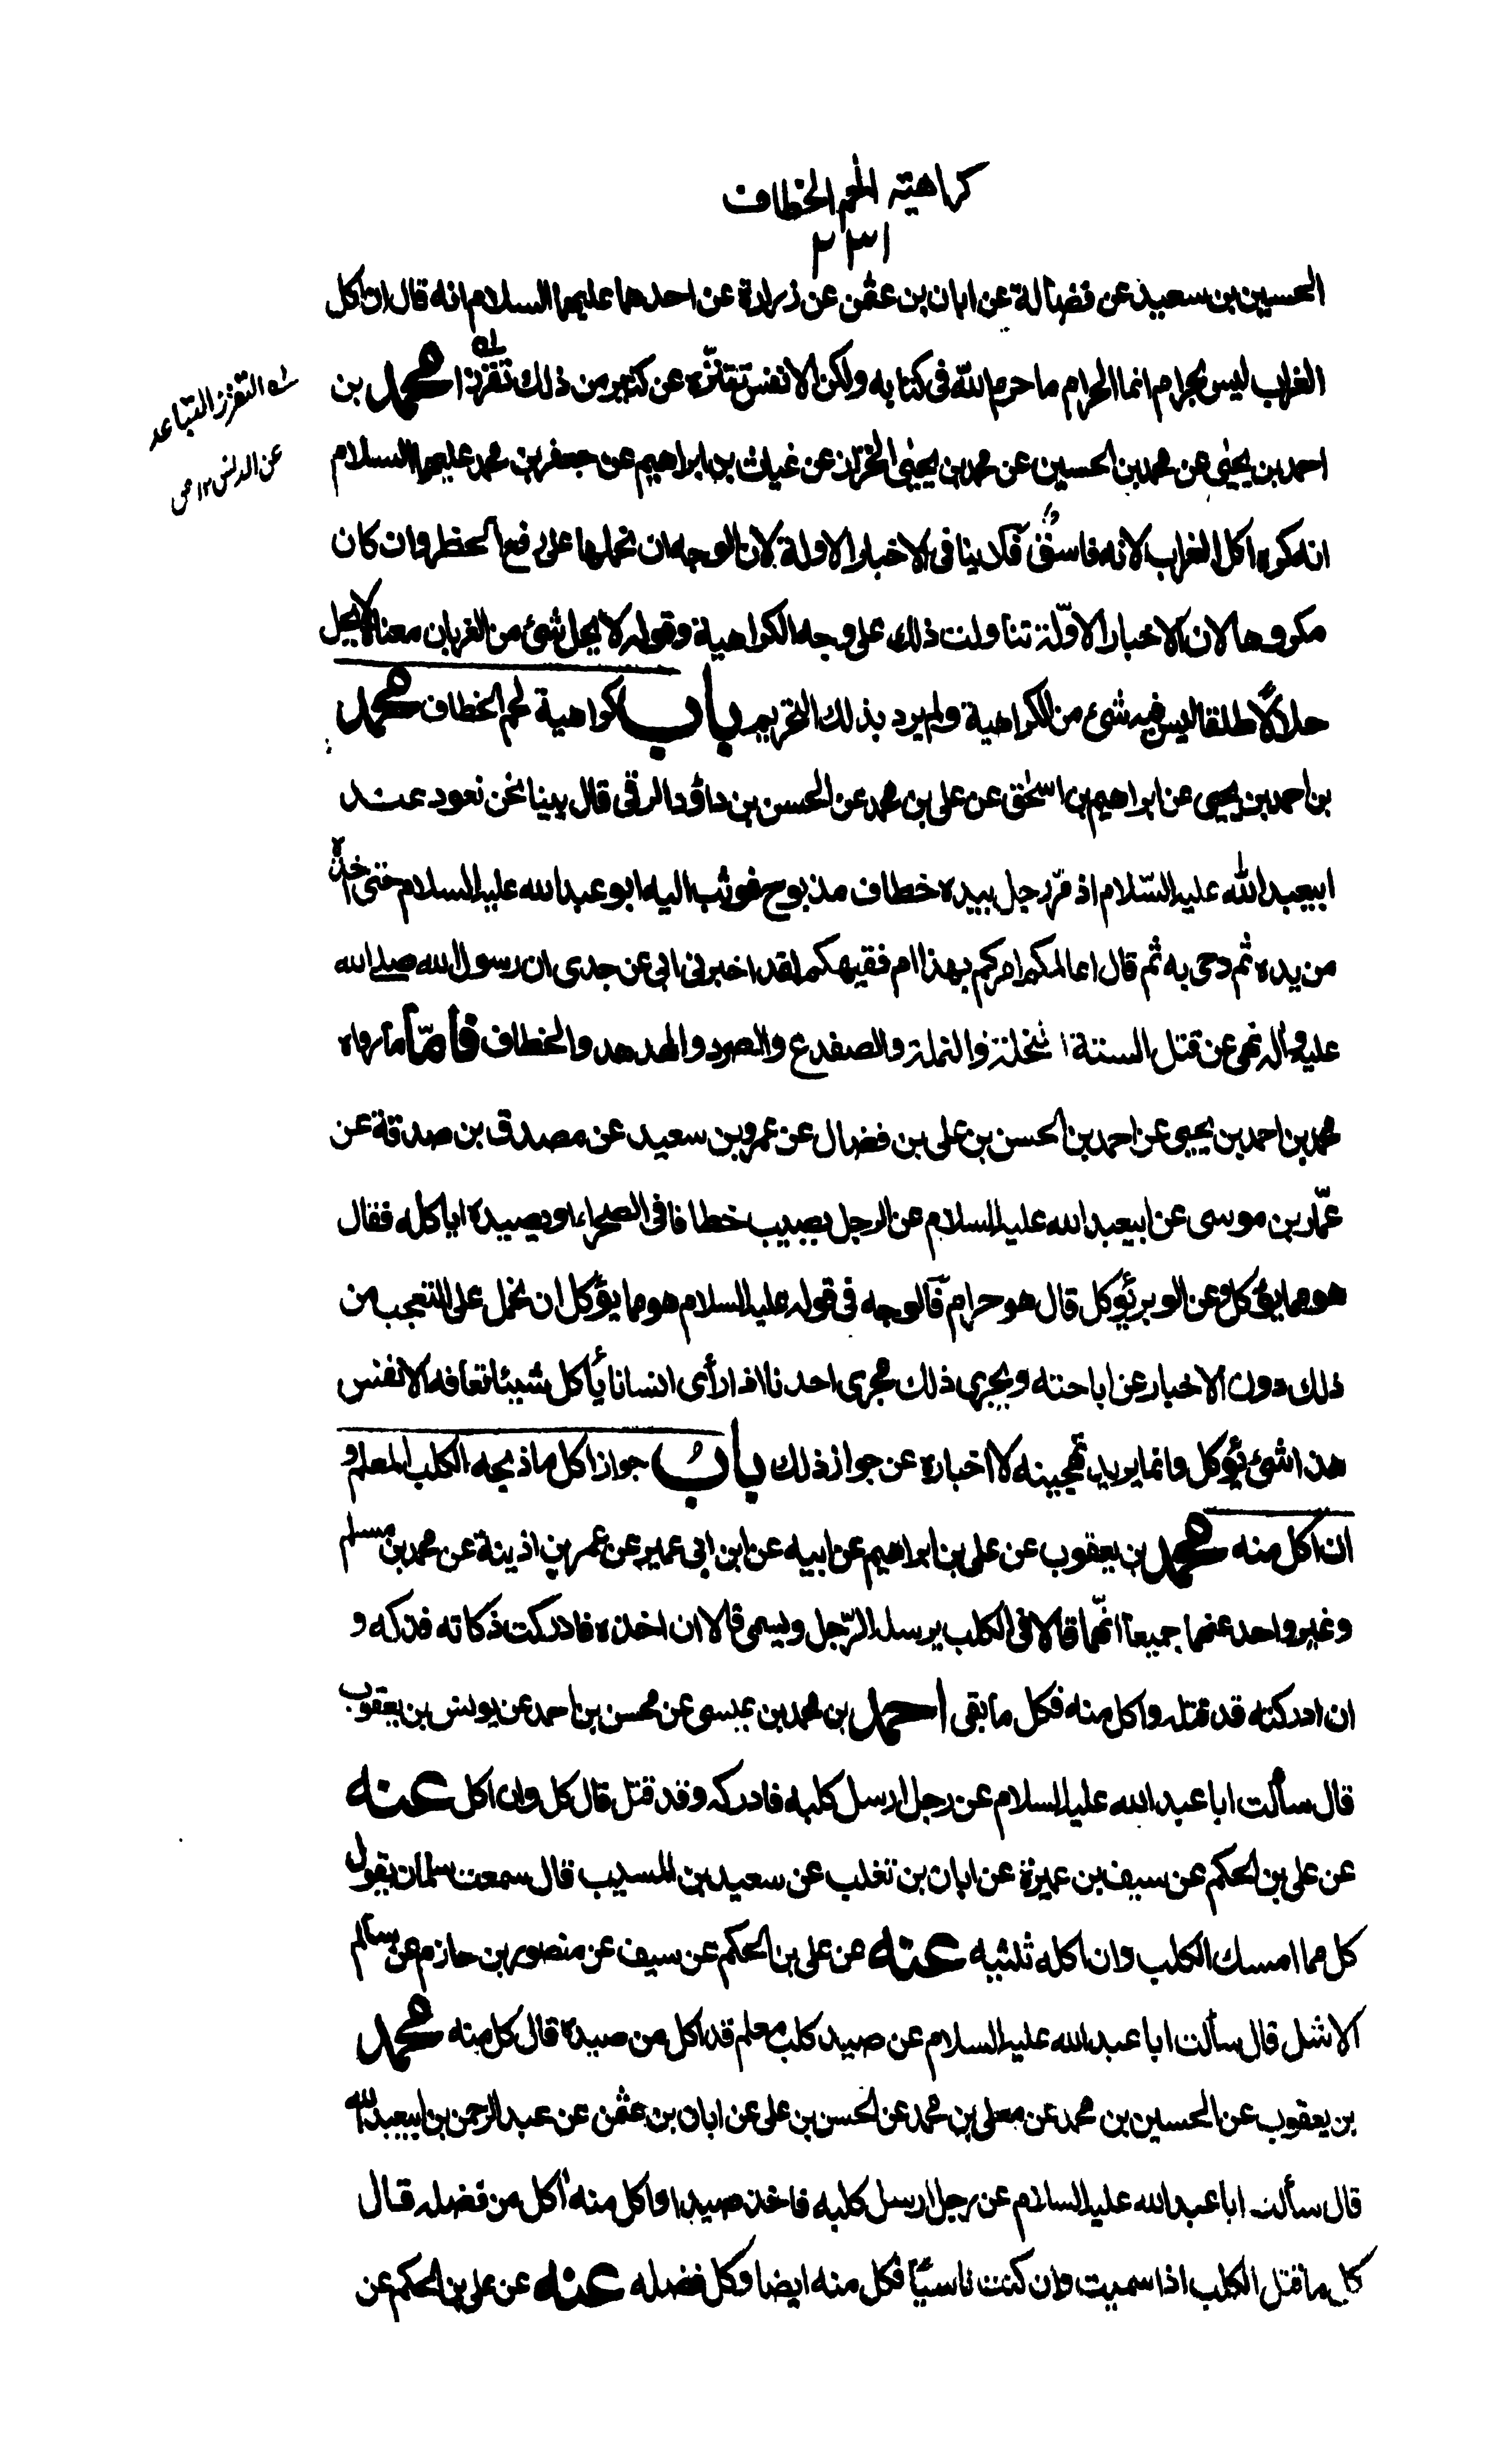 كراهيته لحم الخطاف
٢٣١
الحسين بن سعيد عن فضالة عن ابان بن عثمن عن زرارة عن احدهما عليهما السلام انه قال ان اكل
الغراب ليس بحرام انما الحرام ما حرم الله فى كتابه ولكن الانفس تتنزه عن كثير من ذلك تقززا محمد بن
احمد بن يحيى عن محمد بن الحسين عن محمد بن يحيى الخزاز عن غياث بن ابراهيم عن جعفر بن محمد عليهما السلام
انه كره اكل الغراب لانه فاسق فلا ينافى الاخبار الاولة لان الوجه ان نحملها على رفع الحظر وان كان
مكروها لان الاخبار الاوّلة تناولت ذلك على وجه الكراهية وقوله لا يحل شئ من الغربان معناه لا يحل
حلالاً طلقا ليس فيه شئ من الكراهية ولم يرد بذلك التحريم باب كراهية لحم الخطاف محمد
بن احمد بن يحيى عن ابراهيم بن اسحٰق عن على بن محمد عن الحسن بن داؤد الرقى قال بينا نحن نعود عند
ابيعبد الله عليه السّلام اذ مرّ رجل بيده خطاف مذبوح فوثب اليه ابو عبد الله عليه السلام حتى اخذه
من يده ثم دحى به ثم قال اعالمكم امركم بهذا ام فقيهكم لقد اخبرنى ابى عن جدى ان رسول الله صلى الله
عليه وآله نهى عن قتل الستة النحلة والنملة والضفدع والصرد والهدهد والخطاف فامّا ما رواه
محمد بن احمد بن يحيى عن احمد بن الحسن بن على بن فضال عن عمرو بن سعيد عن مصدق بن صدقة عن
عمّار بن موسى عن ابيعبد الله عليه السلام عن الرجل يصيب خطافا فى الصحراء او يصيده اياكله فقال
هو مما يؤكل وعن الوبر يؤكل قال هو حرام فالوجه فى قوله عليه السلام هو مما يؤكل ان نحمل على التعجب من
ذلك دون الاخبار عن اباحته ويجرى ذلك مجرى احدنا اذا رأى انسانا يأكل شيئا تعافه الانفس
هذا شئ يؤكل وانما يريد تهجينه لا اخباره عن جواز ذلك باب جواز اكل ما ذبحه الكلب المعلم و
ان اكل منه محمد بن يعقوب عن على بن ابراهيم عن ابيه عن ابن ابى عمير عن عمر بن اذينة عن محمد بن مسلم
وغير واحد عنهما جميعا انهّما قالا فى الكلب يرسله الرّجل ويسمى قالا ان اخذه فادركت ذكاته فذكه و
ان ادركته قد قتله واكل منه فكل ما بقى احمد بن محمد بن عيسى عن محسن بن احمد عن يونس بن يعقوب
قال سألت ابا عبد الله عليه السلام عن رجل ارسل كلبه فادركه وقد قتل قال كل وان اكل عنه
عن على بن الحكم عن سيف بن عميرة عن ابان بن تغلب عن سعيد بن المسيب قال سمعت سلمان يقول
كل مما امسك الكلب وان اكله ثلثيه عنه عن على بن الحكم عن سيف عن منصور بن حازم عن سالم
الاشل قال سألت ابا عبد الله عليه السلام عن صيد كلب معلم قد اكل من صيده قال كل منه محمد
بن يعقوب عن الحسين بن محمد عن معلى بن محمد عن الحسن بن على عن ابان بن عثمن عن عبد الرحمن بن ابيعبد الله
قال سألت ابا عبد الله عليه السلام عن رجل ارسل كلبه فاخذ صيدا واكل منه آكل من فضله قال
كل ما قتل الكلب اذا سميت وان كنت ناسيًا فكل منه ايضا وكل فضله عنه عن على بن الحكم عن
له التقزز التباعد
عن الدنس ١٢ ص